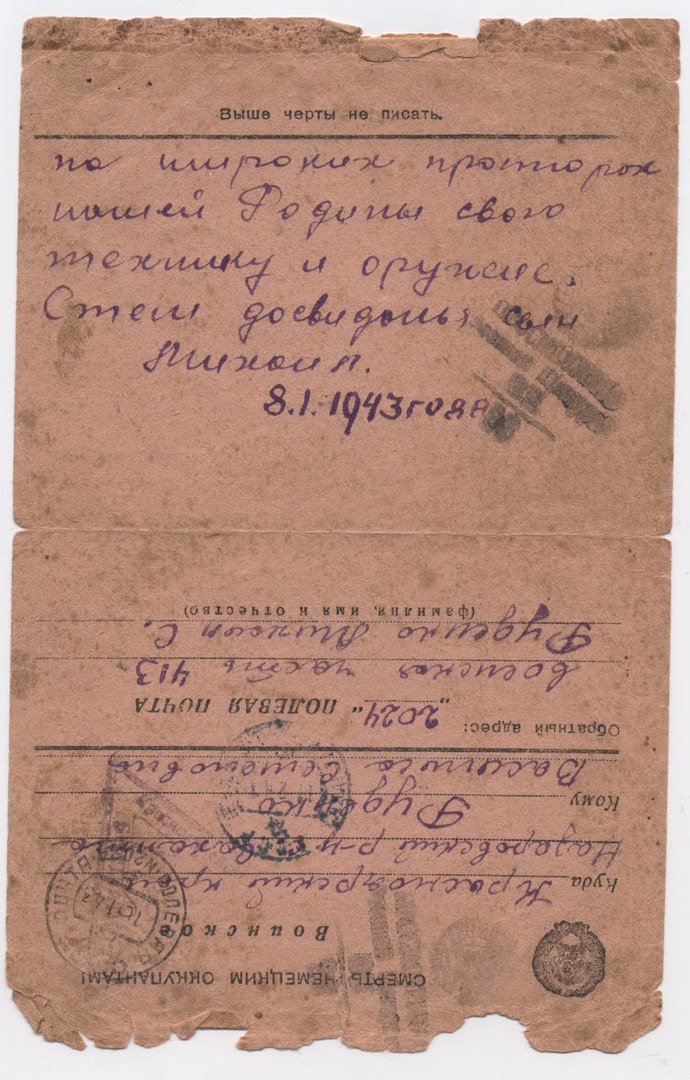 Выше черты не писать.
по широких просторах
нашей Родины свого
технику и оружие.
Стем досвиданья сын
Михаил.
8.1.1943 года
СМЕРТЬ НЕМЕЦКИМ ОККУПАНТАМ!
Воинское
Куда Красноярский край
Назаровский р-н
Кому Руденко
Василиса Семеновна
Обратный адрес: 2024 „ ПОЛЕВАЯ ПОЧТА
воинская часть 413
Руденко Михаил С.
(фамилия, имя и отчество)